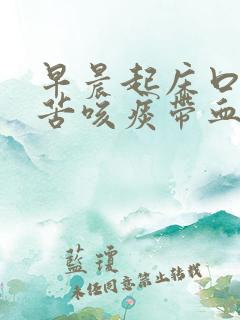 早晨起床口
苦咳痰带血
蓝琼
未经同意禁止转载